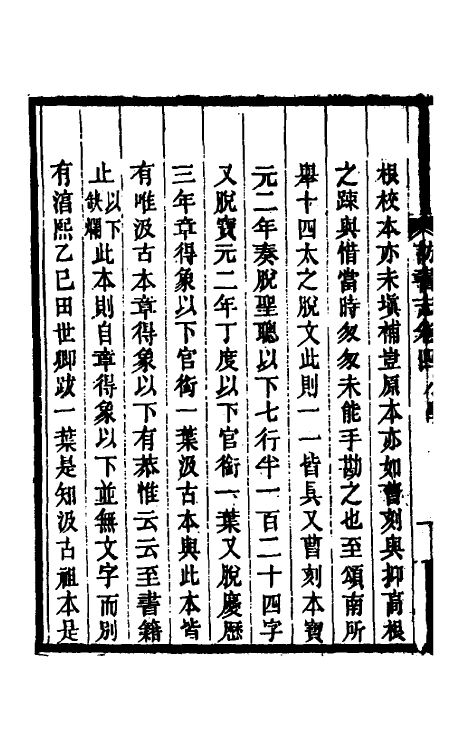 根校本亦未塡補豈原本亦如曹刻與抑高根
之疎與惜當時匆匆未能手勘之也至頌南所
舉十四太之脫文此則一一皆具又曹刻本寶
元二年奏脫聖聰以下七行半一百二十四字
又脫寶元二年丁度以下官銜一葉又脫慶歷
三年章得象以下官銜一葉汲古本與此本皆
有唯汲古本章得象以下有恭惟云云至書籍
止以下缺爛此本則自章得象以下並無文字而別
有湻熙乙巳田世卿跋一葉是知汲古祖本是
訪書志卷四